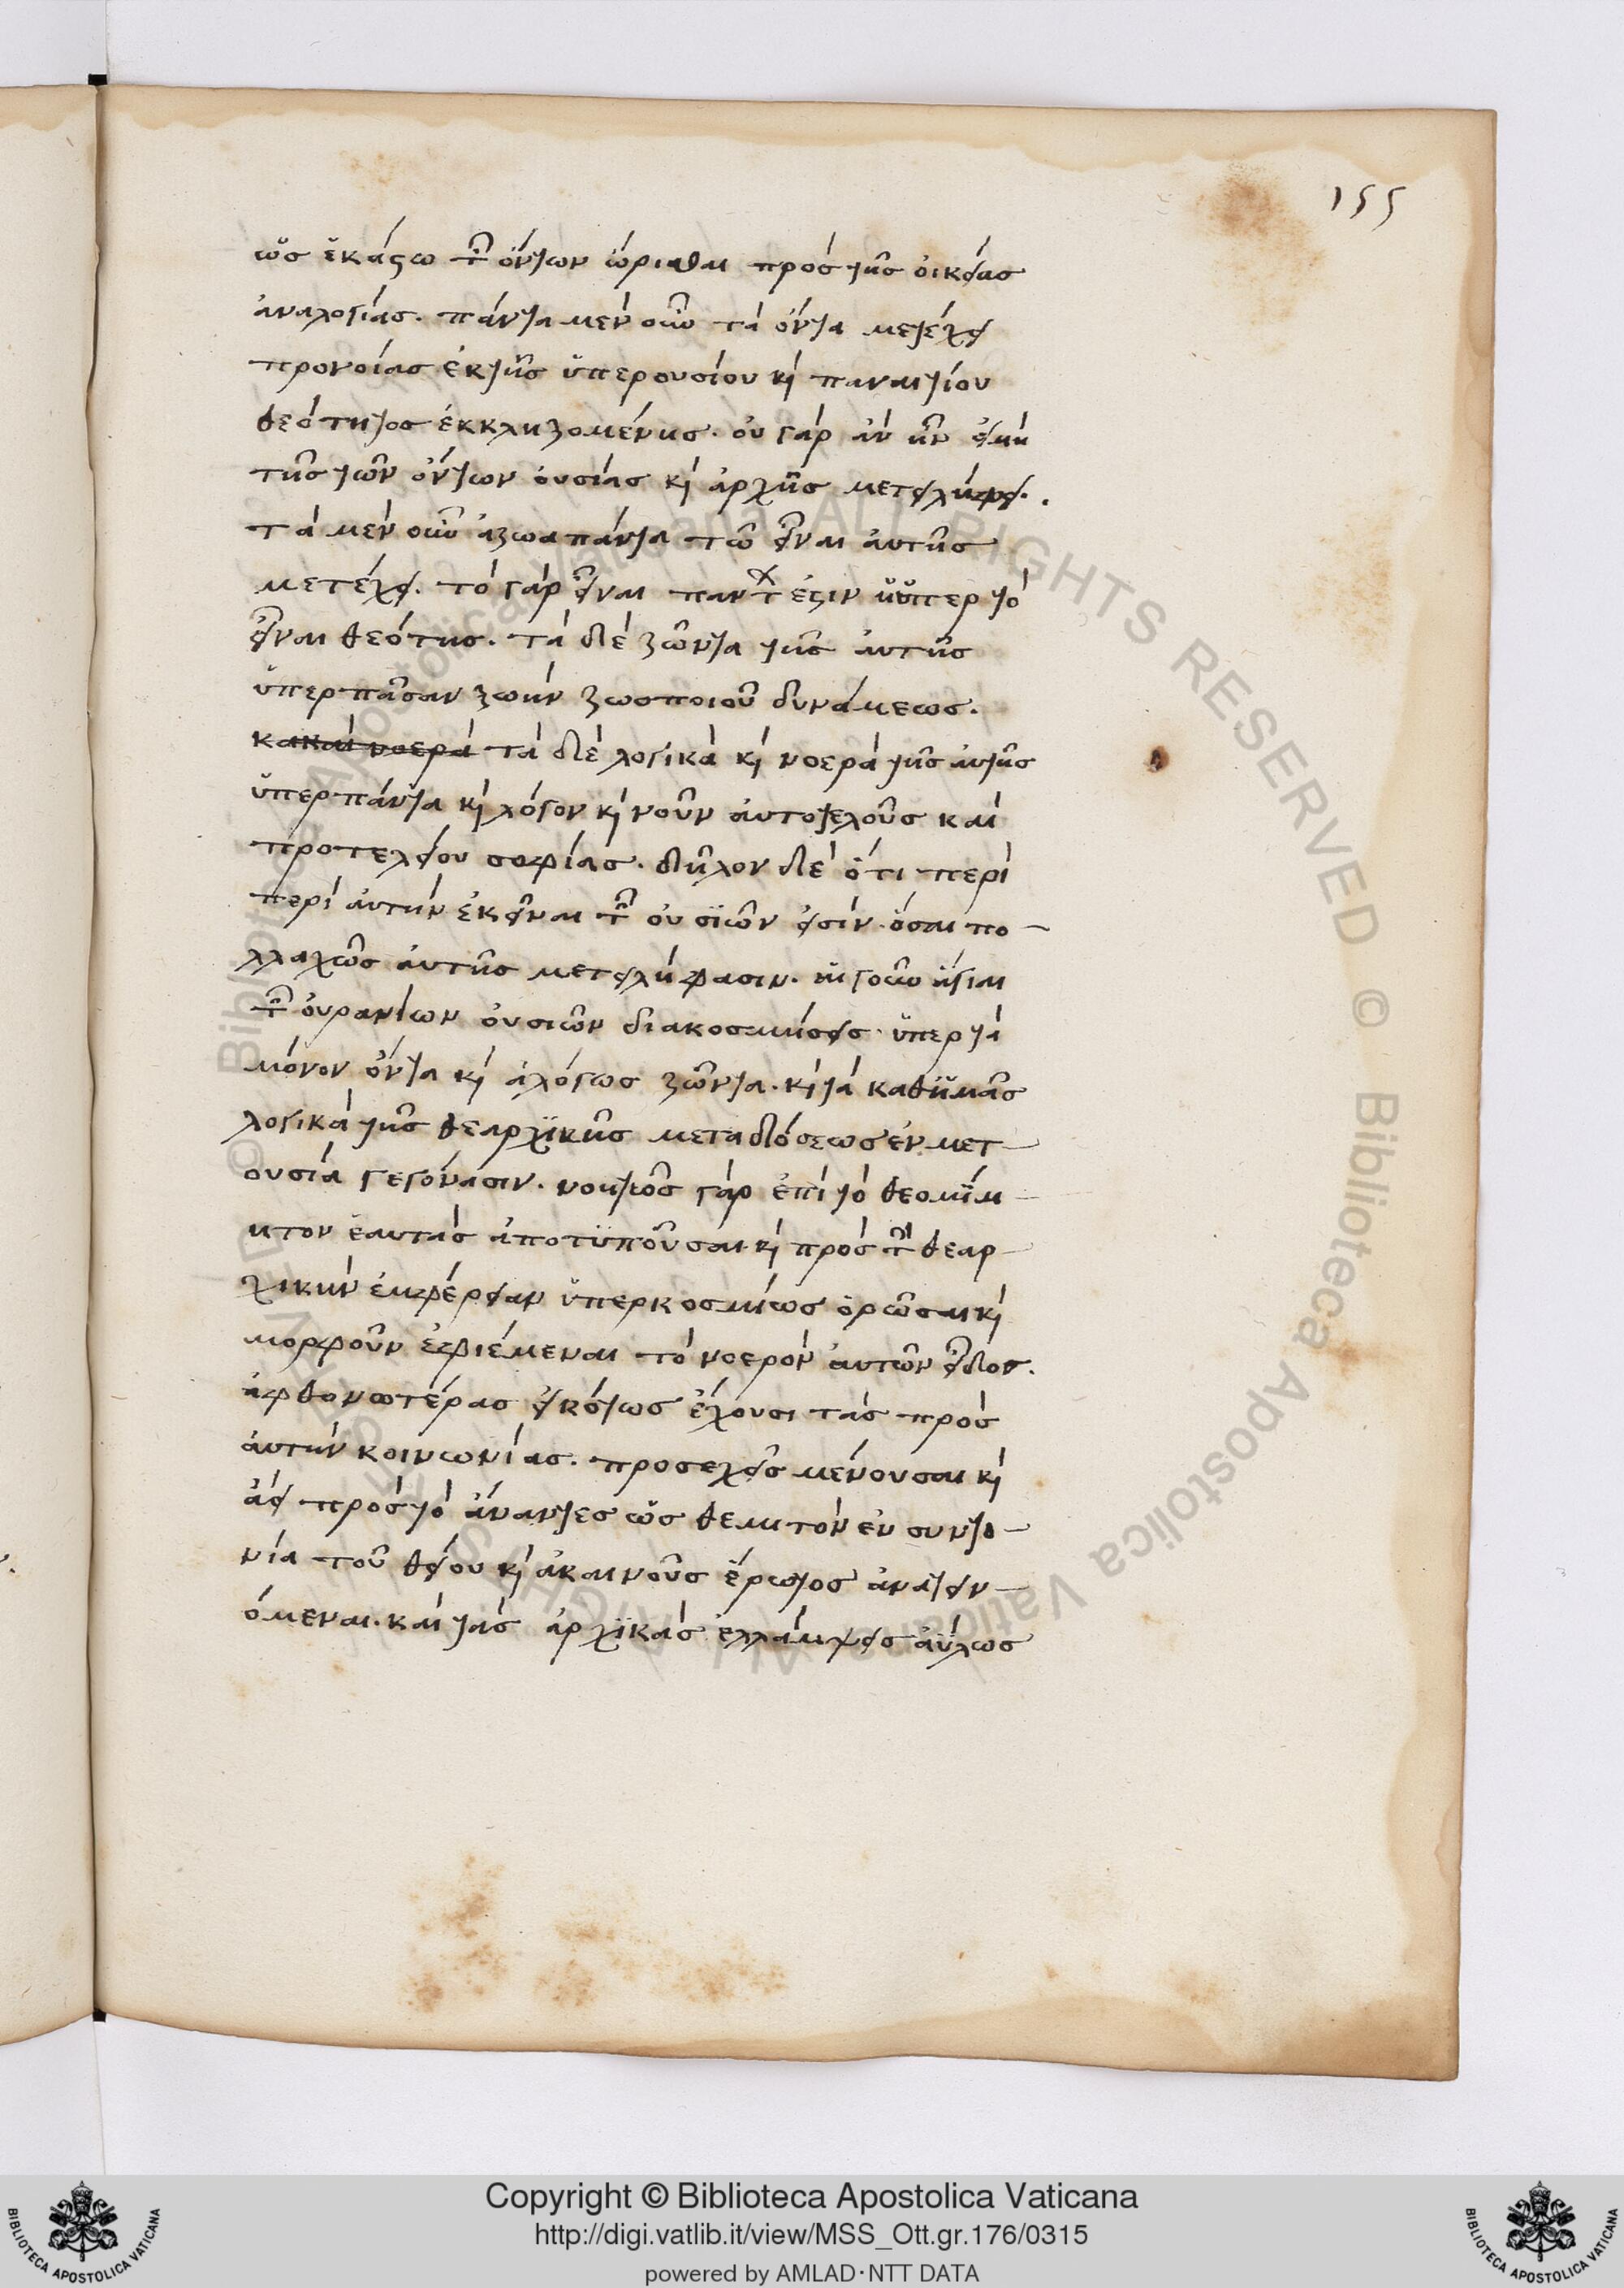 155
ὡς ἑκάστω τῶν ὄντων ὥρισται πρὸς τῆς οἰκείας
ἀναλογίας. πάντα μὲν οὖν τὰ ὄντα μετέχει
προνοίας ἐκ τῆς ὑπερουσίου καὶ παναιτίου
θεότητος ἐκκλυζομένης. οὐ γὰρ ἂν ἦν εἰ μὴ
τῆς τῶν ὄντων οὐσίας καὶ ἀρχῆς μετειλήφει.
τὰ μὲν οὖν ἄζωα πάντα τῶ εἶναι αὐτῆς
μετέχει. τὸ γὰρ εἶναι πάντων ἐστιν ἡ ὑπερ τὸ
εἶναι θεότης. τὰ δὲ ζῶντα τῆς αὐτῆς
ὑπερ πᾶσαν ζωὴν ζωοποιοῦ δυνάμεως.
κακαὶ νοερὰ τὰ δὲ λογικὰ καὶ νοερὰ τῆς αὐτῆς
ὑπερ πάντα καὶ λόγον καὶ νοῦν αὐτοτελοῦς καὶ
προτελείου σοφίας. δῆλον δὲ ὅτι περὶ
περὶ αὐτὴν ἐκεῖναι τῶν οὐσιῶν εἰσὶν. ὅσαι πο-
λλαχῶς αὐτῆς μετειλήφασιν. αἱ γοῦν ἅγιαι
τῶν οὐρανίων οὐσιῶν διακοσμήσεις ὑπερ τὰ
μόνον ὄντα καὶ ἀλόγως ζῶντα. καὶ τὰ καθ ἡμᾶς
λογικὰ τῆς θεαρχικῆς μεταδόσεως ἐν μετ-
ουσία γεγόνασιν. νοητῶς γὰρ ἐπὶ τὸ θεομίμ-
ητον ἑαυτὰς ἀποτυποῦσαι καὶ πρὸς τὴν θεαρ-
χικὴν ἐμφέρειαν ὑπερκοσμίως ὁρῶσαι καὶ
μορφοῦν ἐφιέμεναι τὸ νοερὸν αὐτῶν εἶδος.
ἀφθονωτέρας εἰκότως ἔχουσι τὰς πρὸς
αὐτὴν κοινωνίας. προσεχεῖς μένουσαι καὶ
ἀεὶ πρὸς τὸ ἄναντες ὡς θεμιτὸν ἐν συντο-
νία τοῦ θείου καὶ ἀκαινοῦς ἔρωτος ἀνατειν-
όμεναι. καὶ τὰς ἀρχικὰς ἐλλάμψεις ἀΰλως
Copyright © Biblioteca Apostolica Vaticana
http://digi.vatlib.it/view/MSS_Ott.gr.176/0315
powered by AMLAD·NTT DATA